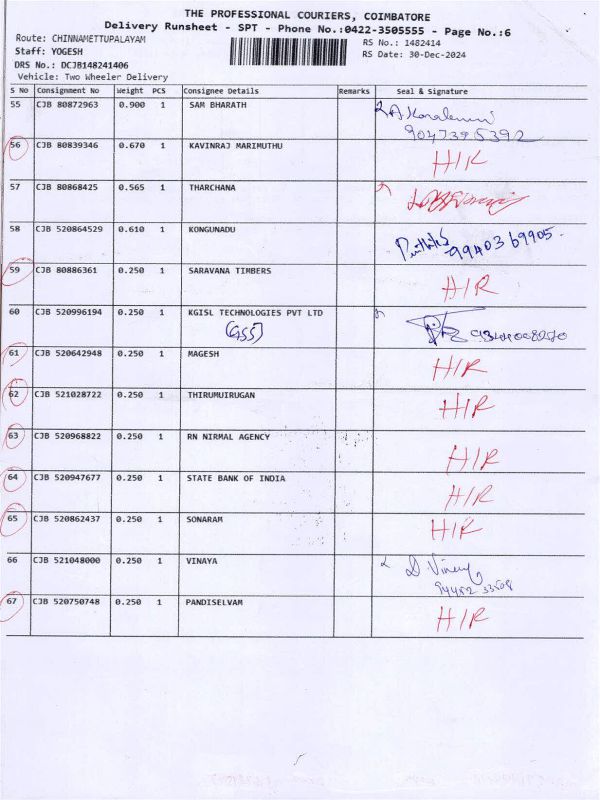 THE PROFESSIONAL COURIERS, COIMBATORE
Delivery Runsheet - SPT - Phone No.:0422-3505555 - Page No.:6
Route: CHINNAMETTUPALAYAM
RS No.: 1482414
Staff: YOGESH
RS Date: 30-Dec-2024
DRS No.: DCJB148241406
Vehicle: Two Wheeler Delivery
S No Consignment No Weight PCS Consignee Details Remarks Seal & Signature
55 CJB 80872963 0.900 1 SAM BHARATH
9047395392
56 CJB 80839346 0.670 1 KAVINRAJ MARIMUTHU H/R
57 CJB 80868425 0.565 1 THARCHANA
58 CJB 520864529 0.610 1 KONGUNADU 9940369905
59 CJB 80886361 0.250 1 SARAVANA TIMBERS H/R
60 CJB 520996194 0.250 1 KGISL TECHNOLOGIES PVT LTD
(GSS)
61 CJB 520642948 0.250 1 MAGESH H/R
62 CJB 521028722 0.250 1 THIRUMUIRUGAN H/R
63 CJB 520968822 0.250 1 RN NIRMAL AGENCY H/R
64 CJB 520947677 0.250 1 STATE BANK OF INDIA H/R
65 CJB 520862437 0.250 1 SONARAM H/R
66 CJB 521048000 0.250 1 VINAYA
67 CJB 520750748 0.250 1 PANDISELVAM H/R